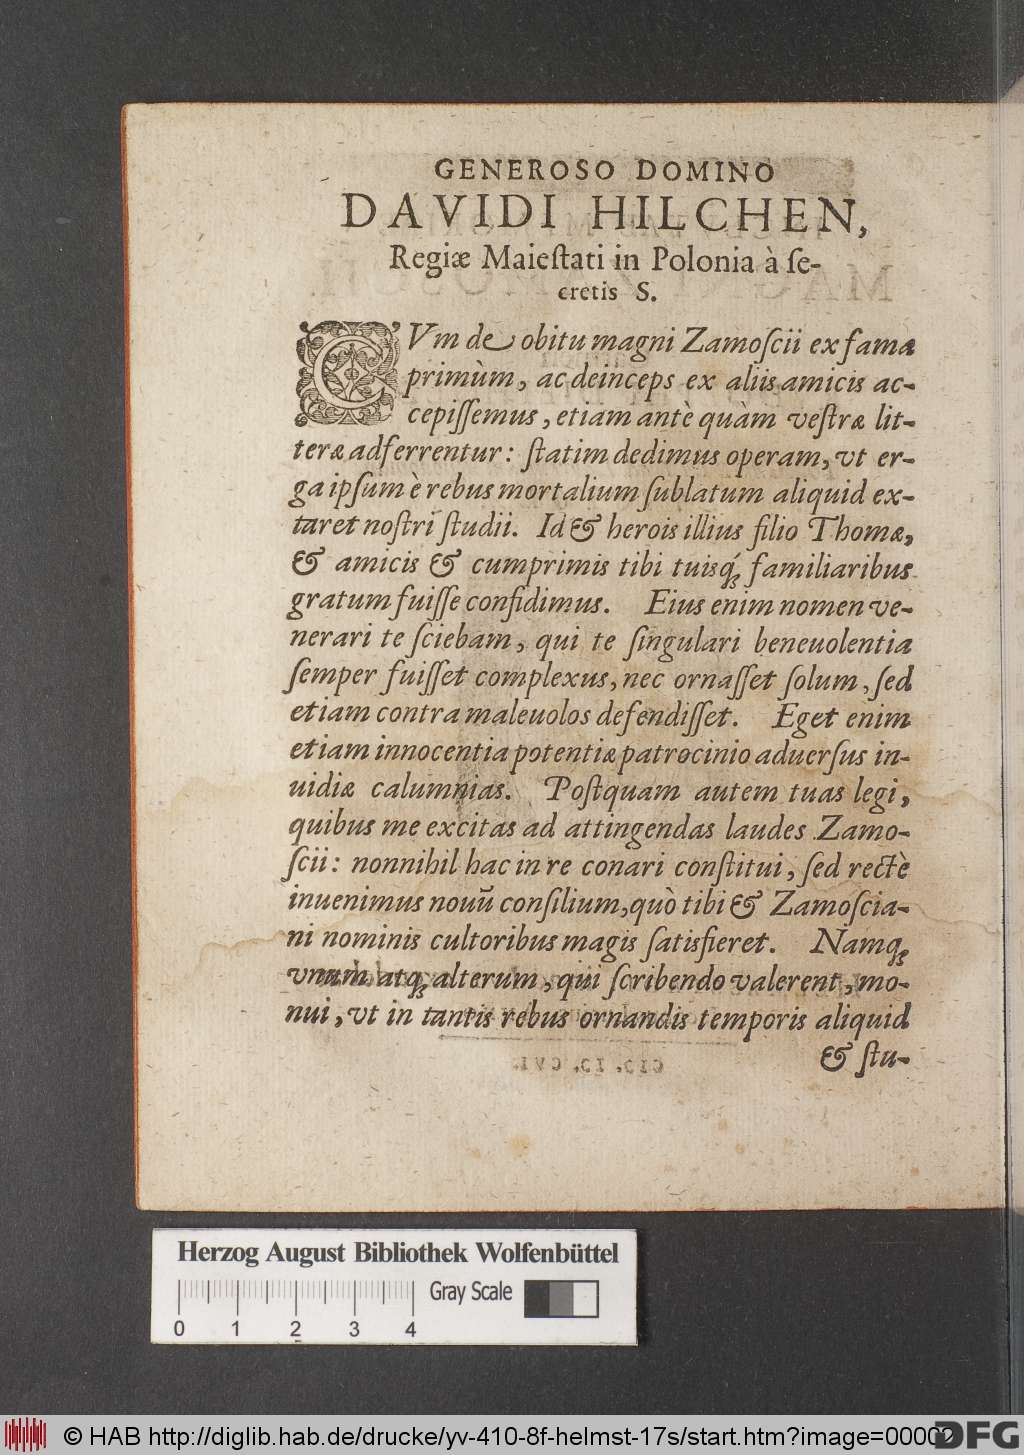 GENEROSO DOMINO
DAVIDI HILCHEN,
Regiæ Maieſtati in Polonia à ſe-
cretis S.
CVm de obitu magni Zamoſcii ex fama
primùm, ac deinceps ex aliis amicis ac-
cepiſſemus, etiam antè quàm veſtræ lit-
teræ adferrentur: ſtatim dedimus operam, vt er-
ga ipſum è rebus mortalium ſublatum aliquid ex-
taret noſtri ſtudii. Id & herois illius filio Thomæ,
& amicis & cumprimis tibi tuisq́ꝫ familiaribus
gratum fuiſſe confidimus. Eius enim nomen ve-
nerari te ſciebam, qui te ſingulari beneuolentia
ſemper fuiſſet complexus, nec ornaſſet ſolum, ſed
etiam contra maleuolos defendiſſet. Eget enim
etiam innocentia potentiæ patrocinio aduerſus in-
uidiæ calumnias. Poſtquam autem tuas legi,
quibus me excitas ad attingendas laudes Zamo-
ſcii: nonnihil hac in re conari conſtitui, ſed rectè
inuenimus nouū conſilium, quò tibi & Zamoſcia-
ni nominis cultoribus magis ſatisfieret. Namqꝫ
vnum atqꝫ alterum, qui ſcribendo valerent, mo-
nui, vt in tantis rebus ornandis temporis aliquid
& ſtu-
Herzog August Bibliothek Wolfenbüttel
Gray Scale
0 1 2 3 4
© HAB http://diglib.hab.de/drucke/yv-410-8f-helmst-17s/start.htm?image=00002
DFG